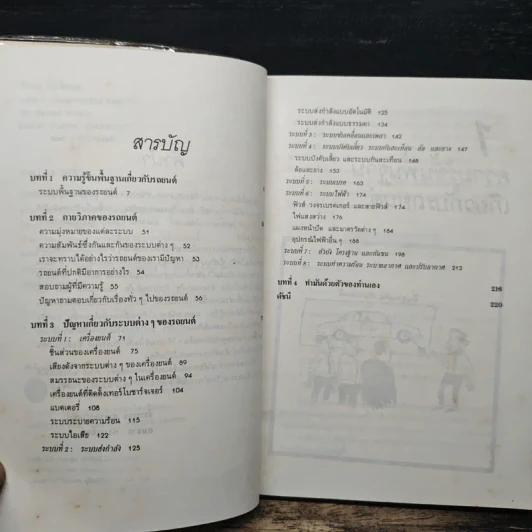 สารบัญ
บทที่ 1 ความรู้ขั้นพื้นฐานเกี่ยวกับรถยนต์
ระบบพื้นฐานของรถยนต์ 7
บทที่ 2 กายวิภาคของรถยนต์
ความมุ่งหมายของแต่ละระบบ 51
ความสัมพันธ์ซึ่งกันและกันของระบบต่าง ๆ 52
เราจะทราบได้อย่างไรว่ารถยนต์ของเรามีปัญหา 54
รถยนต์ที่ปกติมีอาการอย่างไร 54
สอบถามผู้ที่มีความรู้ 55
ปัญหาถามตอบเกี่ยวกับเรื่องทั่ว ๆ ไปของรถยนต์ 56
บทที่ 3 ปัญหาเกี่ยวกับระบบต่าง ๆ ของรถยนต์
ระบบที่ 1 : เครื่องยนต์ 71
ชิ้นส่วนของเครื่องยนต์ 75
เสียงดังจากระบบต่าง ๆ ของเครื่องยนต์ 89
สมรรถนะของระบบต่าง ๆ ในเครื่องยนต์ 94
เครื่องยนต์ที่ติดตั้งเทอร์โบชาร์จเจอร์ 104
แบตเตอรี่ 108
ระบบระบายความร้อน 115
ระบบไอเสีย 122
ระบบที่ 2 : ระบบส่งกำลัง 125
ระบบส่งกำลังแบบอัตโนมัติ 125
ระบบส่งกำลังแบบธรรมดา 134
ระบบที่ 3 : ระบบขับเคลื่อนและเพลา 142
ระบบที่ 4 : ระบบบังคับเลี้ยว ระบบกันสะเทือน ล้อ และยาง 147
ระบบบังคับเลี้ยว และระบบกันสะเทือน 148
ล้อและยาง 153
ระบบที่ 5 : ระบบเบรค
ระบบที่ 6 : ระบบไฟฟ้า 174
ฟิวส์ วงจรเบรคเกอร์ และสายฟิวส์ 174
ไฟแสงสว่าง 176
แผงหน้าปัด และมาตรวัดต่าง ๆ
อุปกรณ์ไฟฟ้าอื่น ๆ
ระบบที่ 7 : ตัวถัง โครงฐาน และกันชน 198
ระบบที่ 8 : ระบบทำความร้อน ระบายอากาศ และปรับอากาศ 213
บทที่ 4 ทำมันด้วยตัวของท่านเอง 216
ดัชนี 220